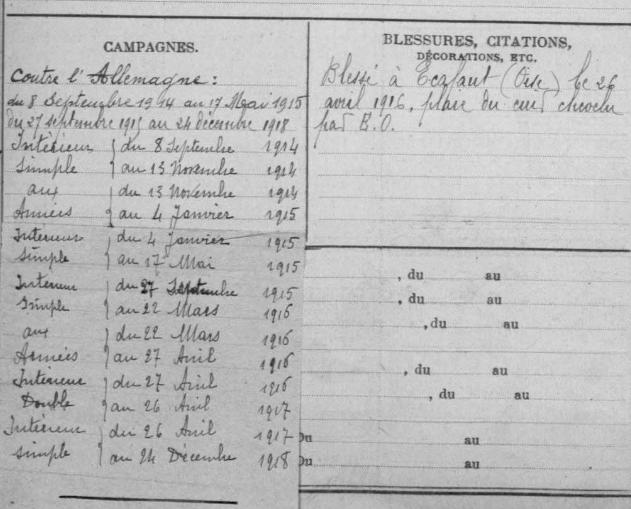 CAMPAGNES.
Contre l'Allemagne :
du 8 Septembre 1914 au 17 Mai 1915
du 27 septembre 1915 au 24 décembre 1918
Intérieur } du 8 Septembre 1914
simple } au 13 Novembre 1914
aux } du 13 Novembre 1914
Armées } au 4 Janvier 1915
Intérieur } du 4 Janvier 1915
simple } au 17 Mai 1915
Intérieur } du 27 Septembre 1915
simple } au 22 Mars 1916
aux } du 22 Mars 1916
Armées } au 27 Avril 1916
Intérieur } du 27 Avril 1916
Double } au 26 Avril 1917
Intérieur } du 26 Avril 1917
simple } au 24 Décembre 1918
BLESSURES, CITATIONS,
DÉCORATIONS, ETC.
Blessé à (Oise) le 26
avril 1916, plaie du cuir chevelu
par E.O.
, du au
, du au
, du au
, du au
, du au
Du au
Du au